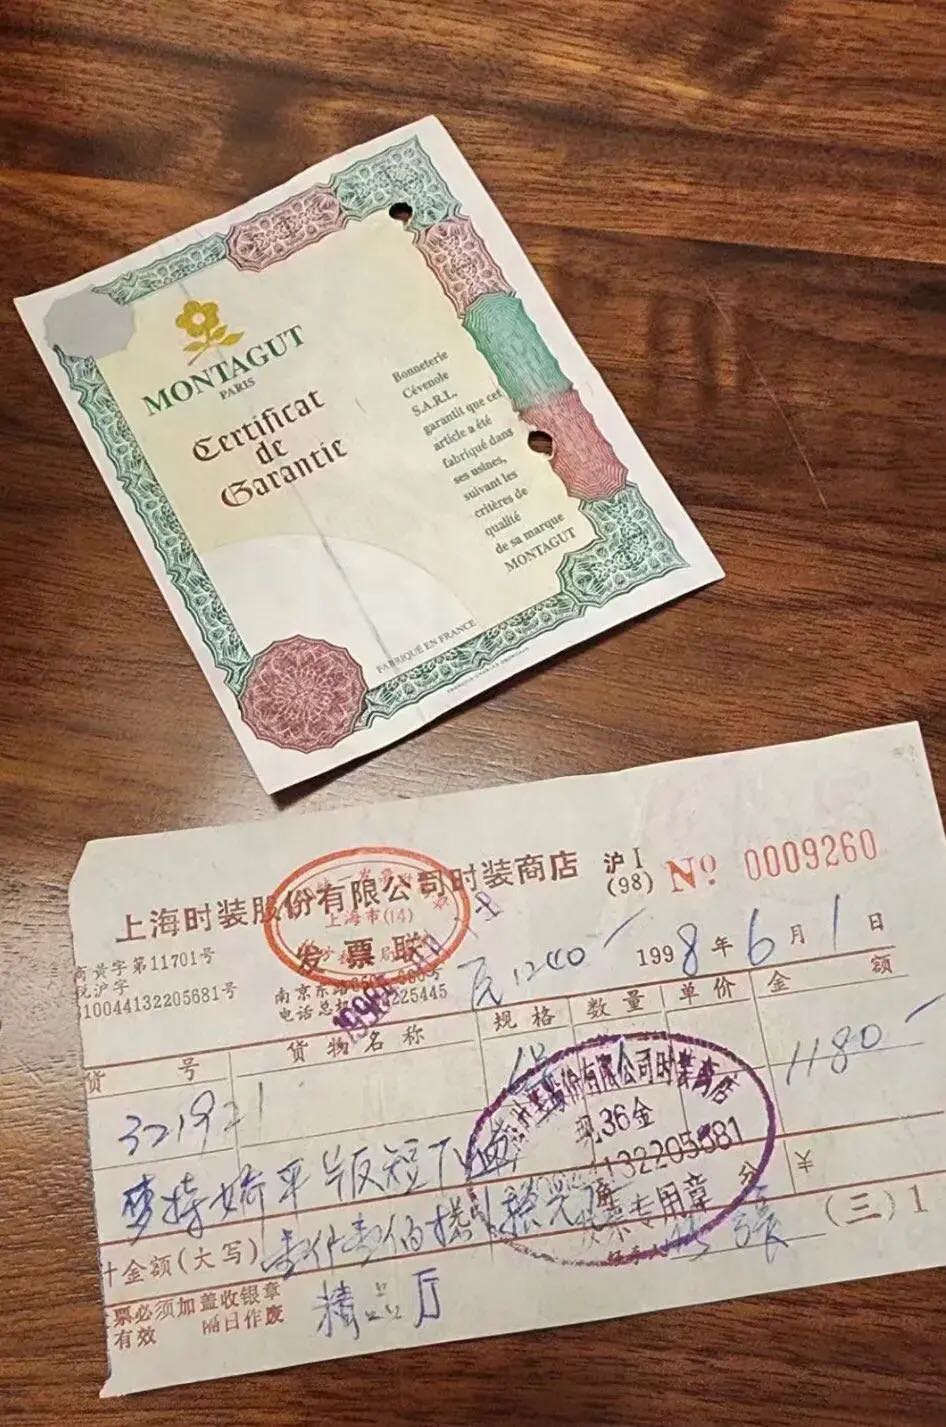 MONTAGUT
PARIS
Certificat
de
Garantie
Bonneterie
Cévenole
S.A.R.L.
garantit que cet
article a été
fabriqué dans
ses usines,
suivant les
critères de
qualité
de sa marque
MONTAGUT
FABRIQUÉ EN FRANCE
上海时装股份有限公司时装商店
沪I
(98)
No 0009260
上海市(14)
发票联
商黄字第11701号
税沪字
310044132205681号
南京东路
电话总机 225445
元1240
1998年6月1日
货号
货物名称
规格
数量
单价
金额
321921
1180
梦特娇平版短T恤
金额(大写)
分
¥
股份有限公司时装商店
现36金
132205681
发票专用章
经手人
張
(三)1
票必须加盖收银章
有效 隔日作废
精品厅